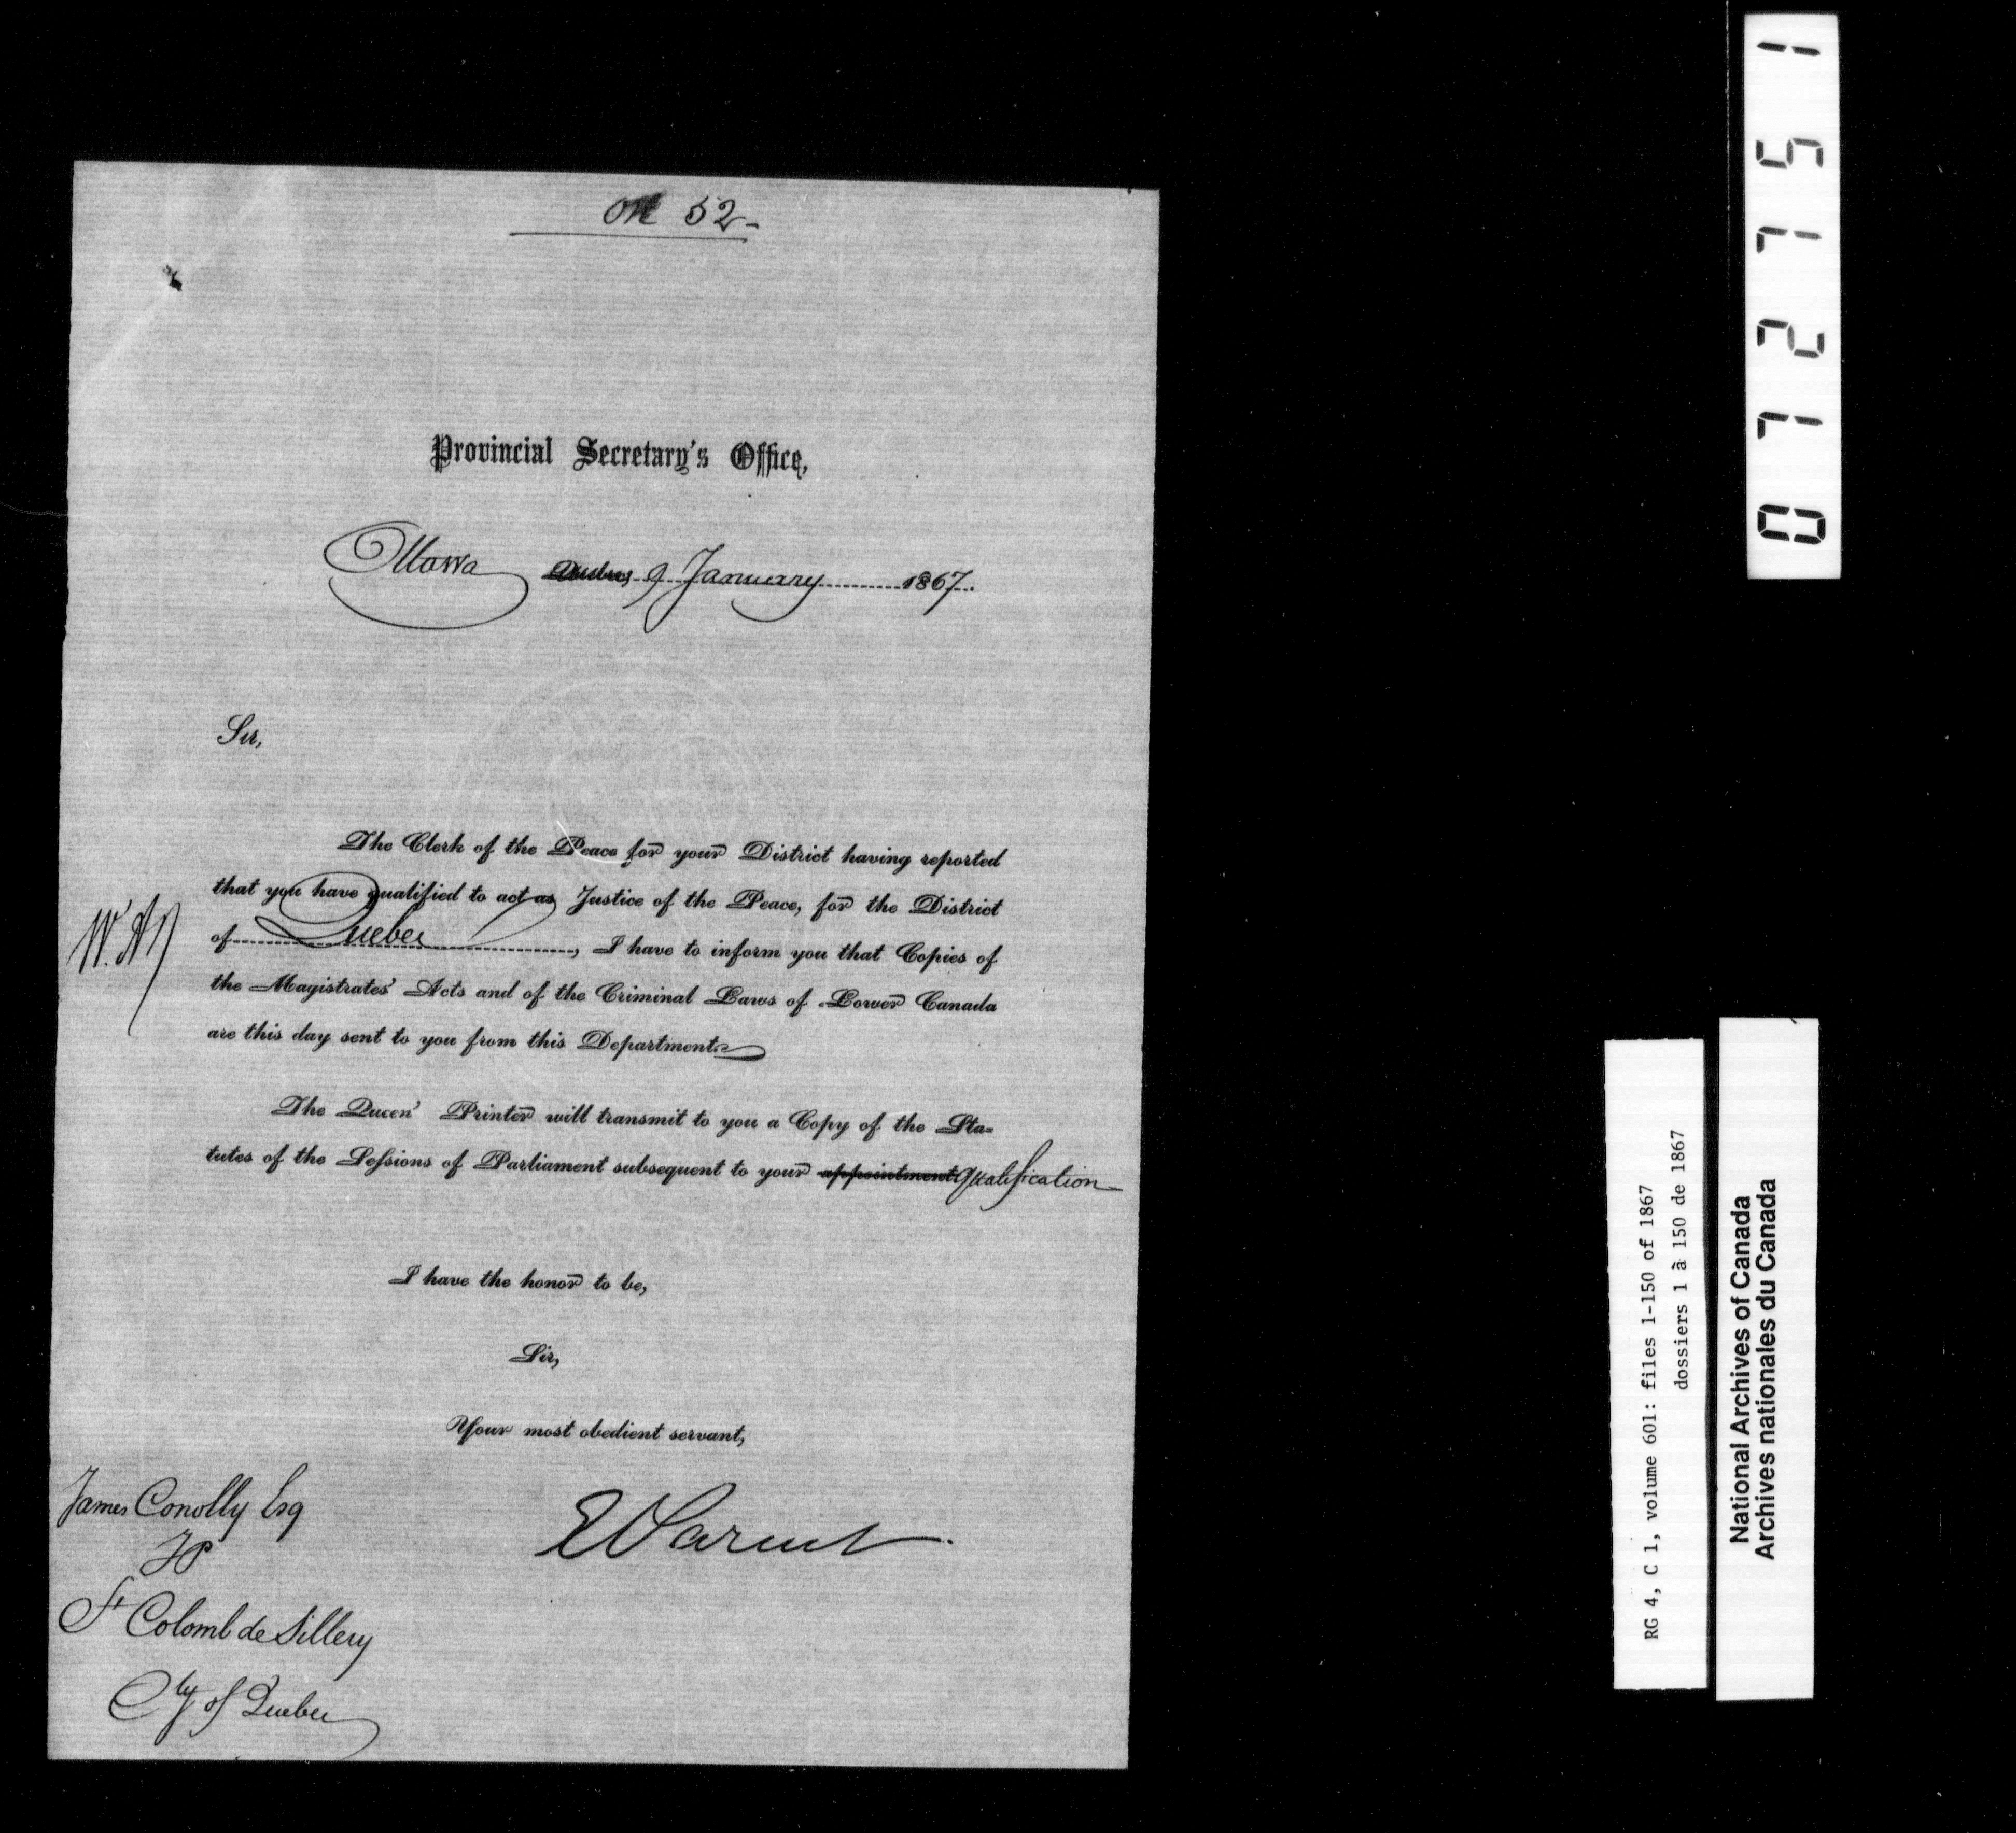 on 52-
Provincial Secretary's Office,
Ottawa Quebec, 9 January 1867.
Sir,
The Clerk of the Peace for your District having reported
that you have qualified to act as Justice of the Peace, for the District
of Quebec, I have to inform you that Copies of
the Magistrates' Acts and of the Criminal Laws of Lower Canada
are this day sent to you from this Department.
The Queen' Printer will transmit to you a Copy of the Sta=
tutes of the Sessions of Parliament subsequent to your appointment qualification
I have the honor to be,
Sir,
Your most obedient servant,
E Parent
James Conolly Esq
JP
St Colomb de Sillery
Cty of Quebec
071751
RG 4, C 1, volume 601: files 1-150 of 1867
dossiers 1 à 150 de 1867
National Archives of Canada
Archives nationales du Canada